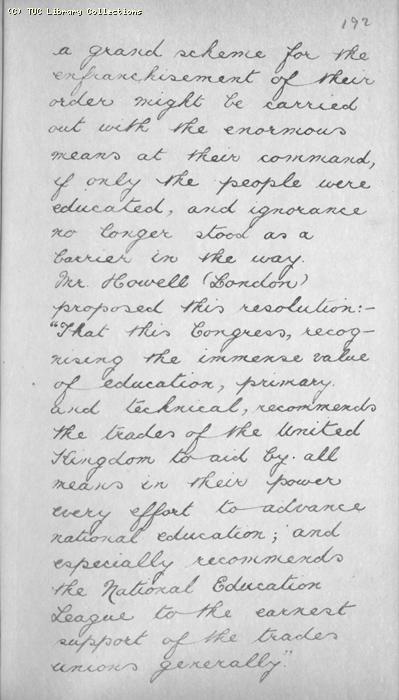 (C) TUC Library Collections
192
a grand scheme for the
enfranchisement of their
order might be carried
out with the enormous
means at their command,
if only the people were
educated, and ignorance
no longer stood as a
barrier in the way.
Mr. Howell (London)
proposed this resolution:-
"That this Congress, recog-
nising the immense value
of education, primary.
and technical, recommends
the trades of the United
Kingdom to aid by. all
means in their power
every effort to advance
national education; and
especially recommends
the National Education
League to the earnest
support of the trades
unions generally."